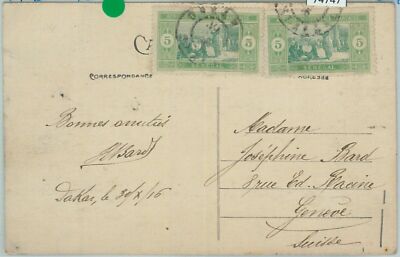 74747
5 5 5 5
SÉNÉGAL SÉNÉGAL
CORRESPONDANCE
ADRESSE
Bonnes amitiés
Dakar, le 30/X/16
Madame
Joséphine Bard
8 rue Ed. Racine
Genève
Suisse